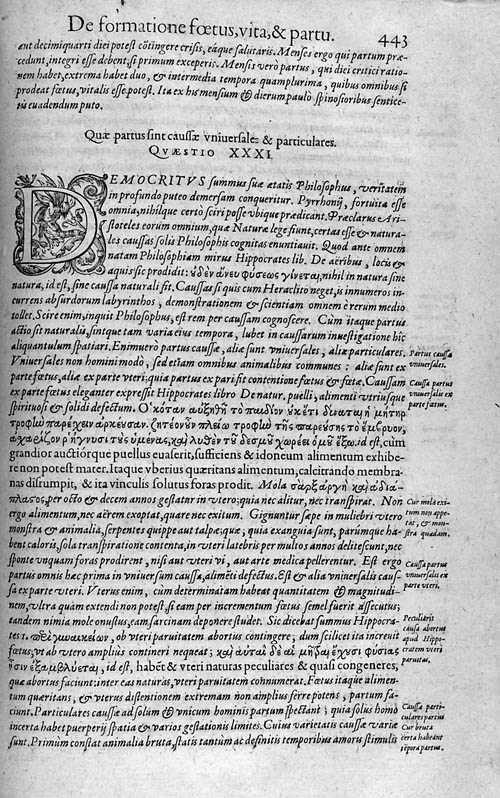 De formatione fœtus, vita, & partu. 443
aut decimiquarti diei potest cōtingere crisis, eaque salutaris. Menses ergo qui partum præ-
cedunt, integri esse debent, si primum exceperis. Mensis verò partus, qui diei critici ratio-
nem habet, extrema habet duo, & intermedia tempora quamplurima, quibus omnibus si
prodeat fœtus, vitalis esse potest. Ita ex his mensium & dierum paulò spinosioribus sentice-
tis euadendum puto.
Quæ partus sint caussæ vniuersales & particulares.
QVÆSTIO XXXI.
DEMOCRITVS summus suæ ætatis Philosophus, veritatem
in profundo puteo demersam conqueritur. Pyrrhonij, fortuita esse
omnia, nihilque certo sciri posse vbique prædicant. Præclarus Ari-
stoteles eorum omnium, quæ Naturæ lege fiunt, certas esse & natura-
les caussas solis Philosophis cognitas enuntiauit. Quod ante omnem
natam Philosophiam mirus Hippocrates lib. De aëribus, locis &
aquis sic prodidit: οὐδὲν ἄνευ φύσεως γίνεται, nihil in natura sine
natura, id est, sine caussa naturali fit. Caussas si quis cum Heraclito neget, is innumeros in-
currens absurdorum labyrinthos, demonstrationem & scientiam omnem è rerum medio
tollet. Scire enim, inquit Philosophus, est rem per caussam cognoscere. Cùm itaque partus
actio sit naturalis, sintque tam varia eius tempora, lubet in caussarum inuestigatione hic
aliquantulum spatiari. Enimuerò partus caussæ, aliæ sunt vniuersales, aliæ particulares.
Vniuersales non homini modò, sed etiam omnibus animalibus communes: aliæ sunt ex
parte fœtus, aliæ ex parte vteri; quia partus ex pari fit contentione fœtus & fœtæ. Caussam
ex parte fœtus eleganter expressit Hippocrates libro De natur. puelli, alimenti vtriusque
spirituosi & solidi defectum. Ὁκόταν αὐξηθῇ τὸ παιδίον οὐκ ἔτι δύναται ἡ μήτηρ
τροφὴν παρέχειν ἀρκέουσαν. ζητέον οὖν πλείω τροφὴν τῆς παρεύσης τὸ ἔμβρυον,
ἀσκαρίζον ῥήγνυσι τοὺς ὑμένας, καὶ λυθὲν τοῦ δεσμοῦ χωρέει ὁμοῦ ἔξω. id est, cùm
grandior auctiorque puellus euaserit, sufficiens & idoneum alimentum exhibe-
re non potest mater. Itaque vberius quæritans alimentum, calcitrando membra-
nas disrumpit, & ita vinculis solutus foras prodit. Mola σὰρξ ἀργὴ καὶ ἀδιά-
πλαστος, per octo & decem annos gestatur in vtero; quia nec alitur, nec transpirat. Non
ergo alimentum, nec aërem exoptat, quare nec exitum. Gignuntur sæpe in muliebri vtero
monstra & animalia, serpentes quippe aut talpæ; quæ, quia exanguia sunt, parùmque ha-
bent caloris, sola transpiratione contenta, in vteri latebris per multos annos delitescunt, nec
sponte vnquam foras prodirent, nisi aut vteri vi, aut arte medica pellerentur. Est ergo
partus omnis hæc prima in vniuersum caussa, alimēti defectus. Est & alia vniuersalis caus-
sa ex parte vteri. Vterus enim, cùm determinatam habeat quantitatem & magnitudi-
nem, vltra quam extendi non potest, si eam per incrementum fœtus semel fuerit assecutus,
tandem nimia mole onustus, eam sarcinam deponere studet. Sic dicebat summus Hippocra-
tes ob vteri paruitatem abortus contingere, dum scilicet ita increuit
fœtus, vt ab vtero ampliùs contineri nequeat;
id est, habēt & vteri naturas peculiares & quasi congeneres,
quæ abortus faciunt: inter eas naturas, vteri paruitatem connumerat. Fœtus itaque alimen-
tum quæritans, & vterus distentionem extremam non ampliùs ferre potens, partum fa-
ciunt. Particulares caussæ ad solum & vnicum hominis partum spectant; quia solus homo
incerta habet puerperij spatia & varios gestationis limites. Cuius varietatis caussæ variæ
sunt. Primùm constat animalia bruta, statis tantùm ac definitis temporibus amoris stimulis
Partus caussæ
vniuersales.
Caussa partus
vniuersalis ex
parte fœtus.
Cur mola exi-
tum non appe-
tat, & mon-
stra quædam.
Caussa partus
vniuersalis ex
parte vteri.
Peculiaris
caussa abortus
apud Hippo-
cratem vteri
paruitas.
Caussæ parti-
culares partus
Cur bruta
certa habeant
tēpora partus.